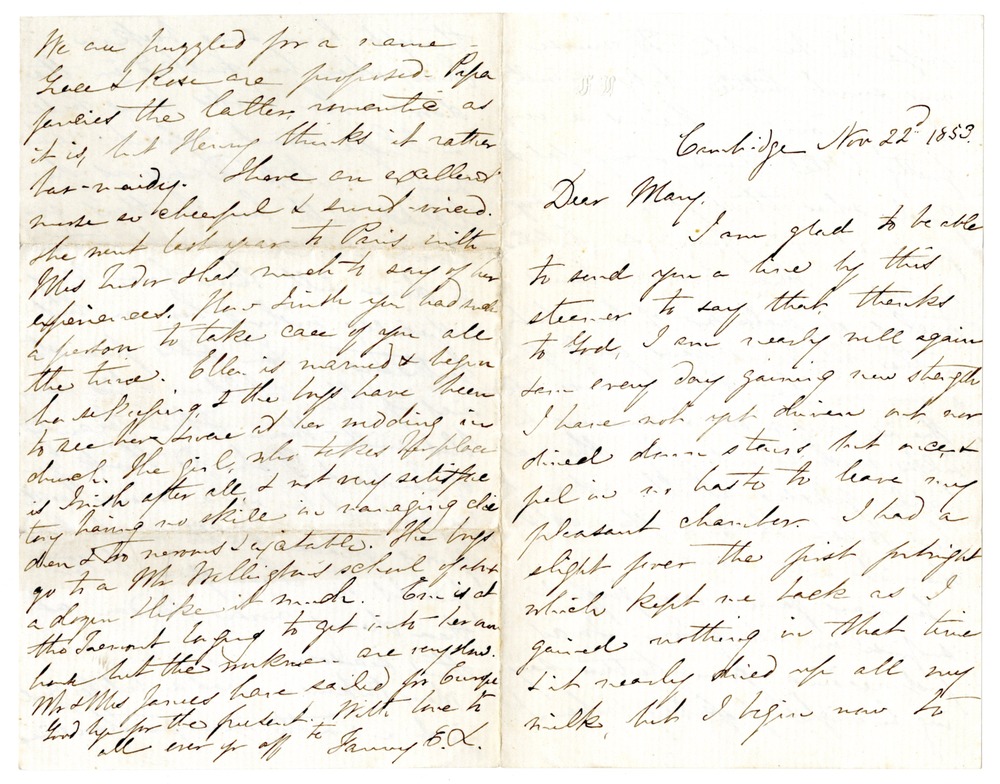 Cambridge Nov 22d 1853.
Dear Mary.
I am glad to be able
to send you a line by this
steamer to say that, thanks
to God, I am nearly well again
& am every day gaining new strength
I have not yet driven out nor
dined down stairs, but
feel in no haste to leave my
pleasant chamber. I had a
slight fever the first fortnight
which kept me back as I
gained nothing in that time
& it nearly dried up all my
milk, but I begin now to
We are puzzled for a name –
Grace & Rose are proposed – Papa
fancies the latter, romantic as
it is, but Henry thinks it rather
bar-maidy. I have an excellent
nurse so cheerful & sound-minded.
She went last year to Paris with
Mrs Tudor & has much to say of her
experiences. How I wish you had such
a person to take care of you all
the time. Ellen is married & begun
housekeeping, & the boys have been
to see her & were at her wedding in
church. The girl, who takes her place
is Irish after all, & not very satisfac
tory having no skill in managing chil
dren & so nervous & excitable. The boys
go to a Mr Wellington's school of about
a dozen & like it much. Emm is at
the Tremont longing to get into her own
house but the workmen are very slow.
Mr & Mrs James have sailed for Europe
Good bye for the present. With love to
all ever yr aff te Fanny E. L.